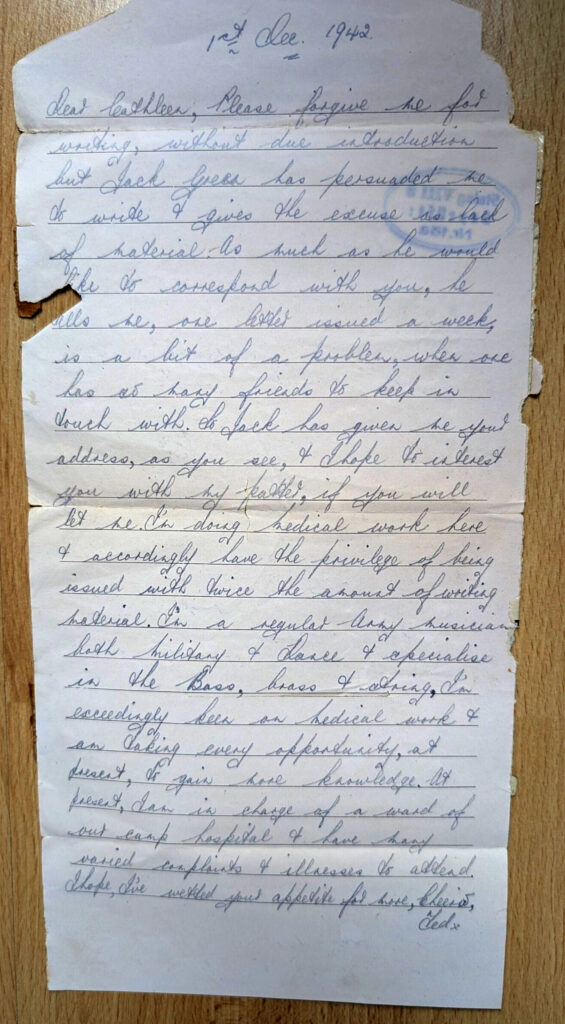 1st Dec. 1942.
Dear Cathleen, Please forgive me for
writing, without due introduction
but Jack Green has persuaded me
to write & gives the excuse as lack
of material. As much as he would
like to correspond with you, he
tells me, one letter issued a week,
is a bit of a problem, when one
has so many friends to keep in
touch with. So Jack has given me your
address, as you see, & I hope to interest
you with my patter, if you will
let me. I'm doing medical work here
& accordingly have the privilege of being
issued with twice the amount of writing
material. I'm a regular Army musician
both Military & Dance & specialise
in the Bass, brass & string, I'm
exceedingly keen on medical work &
am taking every opportunity, at
present, to gain more knowledge. At
present, I am in charge of a ward of
our camp hospital & have many
varied complaints & illnesses to attend.
I hope, I've wetted your appetite for more, Cheerio,
Ted x